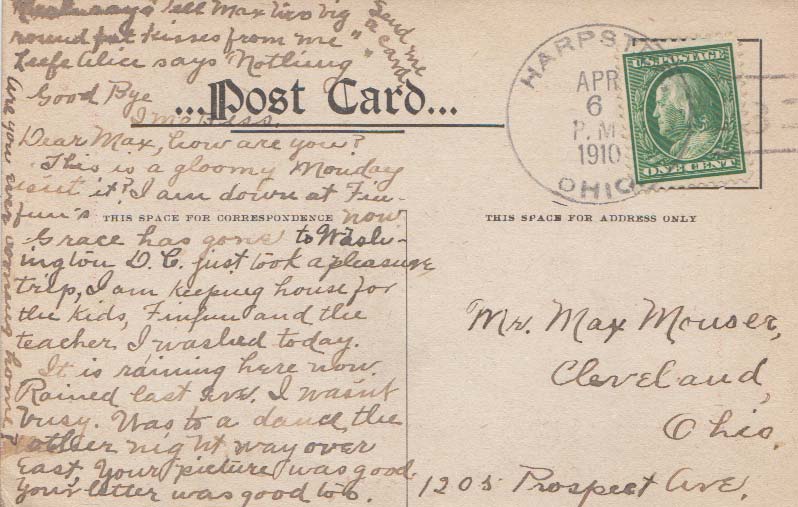 Tell Max two big
round fat kisses from me"
Alice says "Nothing"
Send me
a card
Good Bye
...Post Card...
Dear Max, how are you?
This is a gloomy Monday
isnt it? I am down at Fin-
fun's now
THIS SPACE FOR CORRESPONDENCE
Grace has gone to Wash-
ington D.C. just took a pleasure
trip, I am keeping house for
the kids, Finfun and the
teacher I washed today.
It is raining here now.
Rained last eve. I wasnt
busy. Was to a dance the
other night way over
East, Your picture was good
Your letter was good too.
Are you ever coming home?
HARPST
APR
6
P.M
1910
OHIO
U.S. POSTAGE
ONE CENT
THIS SPACE FOR ADDRESS ONLY
Mr. Max Mouser,
Cleveland,
Ohio.
1205 Prospect Ave.